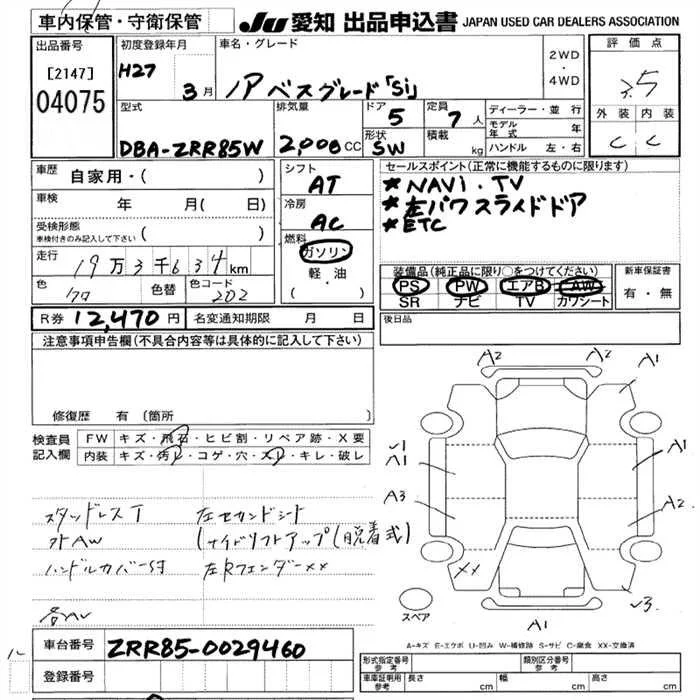 車内保管・守衛保管
JU 愛知 出品申込書 JAPAN USED CAR DEALERS ASSOCIATION
出品番号
[2147]
04075
初度登録年月
H27 3月
車名・グレード
ノア ベスグレード「Si」
2WD
・
4WD
評価点
3.5
外装 内装
C C
型式
DBA-ZRR85W
排気量
2,000 CC
ドア
5
形状
SW
定員
7人
積載
kg
ディーラー・並行
モデル年式 年
ハンドル 左・右
車歴
自家用・( )
車検
年 月( 日)
受検形態
車検付きのみ記入して下さい ( )
走行
19万3千634km
色
クロ
色替
色コード
202
シフト
AT
冷房
AC
燃料
ガソリン
軽・油
( ・ )
セールスポイント(正常に機能するものに限ります)
*NAVI・TV
*左パワスライドドア
*ETC
装備品(純正品に限り○をつけてください)
PS PW エアB AW
SR ナビ TV カワシート
新車保証書
有・無
R券 12,470円
名変通知期限 月 日
後日品
注意事項申告欄(不具合内容等は具体的に記入して下さい)
修復歴 有〔箇所 〕
検査員記入欄
FW キズ・飛石・ヒビ割・リペア跡・X要
内装 キズ・汚レ・コゲ・穴・スレ・キレ・破レ
スタッドレスT
外AW
ハンドルカバー付
左セカンドシート
(サイドリフトアップ(脱着式)
左Rフェンダーxx
A2 A2 A1
✓1
A1
A1
A3
A2
XX
✓3
A1
スペア
A-キズ E-エクボ U-凹み W-補修跡 S-サビ C-腐食 XX-交換済
車台番号 ZRR85-0029460
登録番号
形式指定番号
参考
類別区分番号
参考
車庫証明用
参考
長さ cm 幅 cm 高さ cm